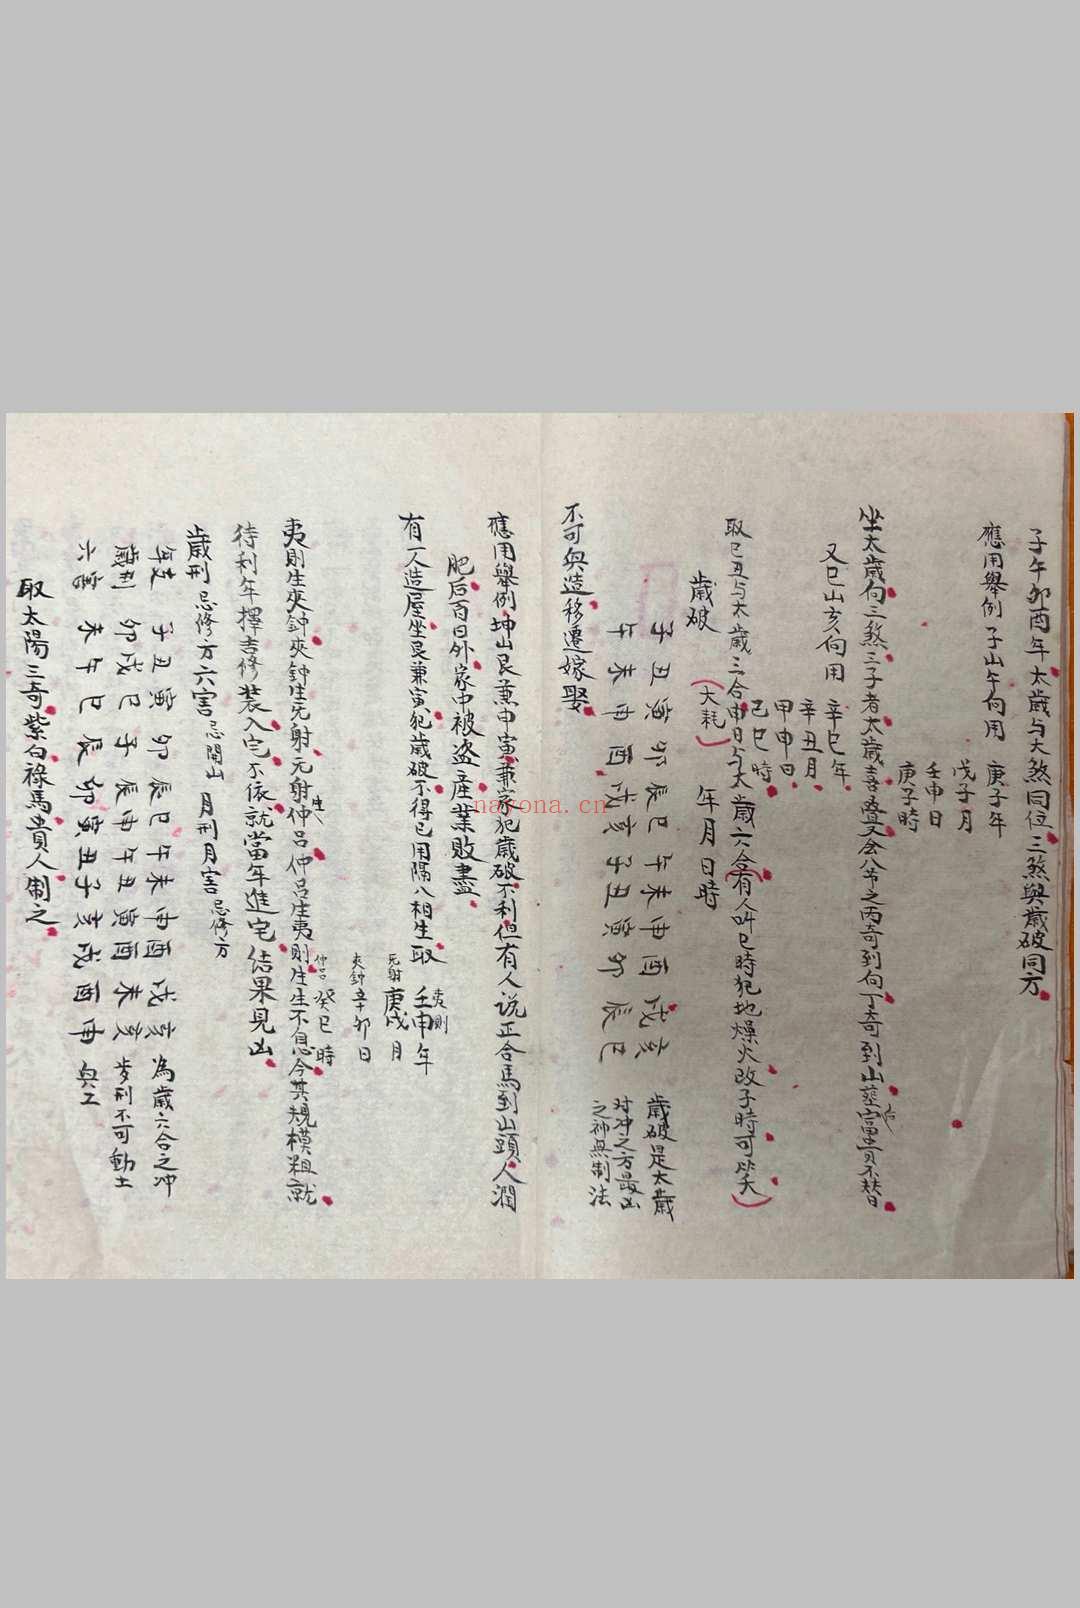 子午卯酉年太歲与大煞同位三煞與歲破同方
應用舉例 子山午向用 庚子年
戊子月
壬申日
庚子時
坐太歲向三煞三子者太歲喜叠又会八节之丙奇到向丁奇到山塟富貴不替
又巳山亥向用 辛巳年
辛丑月
甲申日
己巳時
取巳丑与太歲三合申日与太歲六合(有人叫巳時犯地燥火改子時可必夭)
歲破 (大耗) 年月日時
子丑寅卯辰巳午未申酉戌亥 歲破是太歲
午未申酉戌亥子丑寅卯辰巳 对冲之方最凶
之神無制法
不可興造移遷嫁娶
應用舉例坤山艮兼申寅兼字犯歲破不利但有人说正合馬到山頭人潤
肥后百日外家中被盗産業敗盡
有人造屋坐艮兼寅犯歲破不得已用隔八相生取 夷則 壬申年
无射 庚戌月
夾鈡 辛卯日
仲吕 癸巳時
夷則生夾鈡夾鈡生无射元射生仲吕仲吕生夷則生生不息今其規模粗就
待利年擇吉修装入宅不依就當年進宅结果見凶
歲刑 忌修方 六害 忌開山 月刑月害 忌修方
年支 子丑寅卯辰巳午未申酉戌亥 為歲六合之冲
歲刑 卯戌巳子辰申午丑寅酉未亥 歲刑不可動土
六害 未午巳辰卯寅丑子亥戌酉申 興工
取太陽三奇紫白禄馬貴人制之
nayona.cn